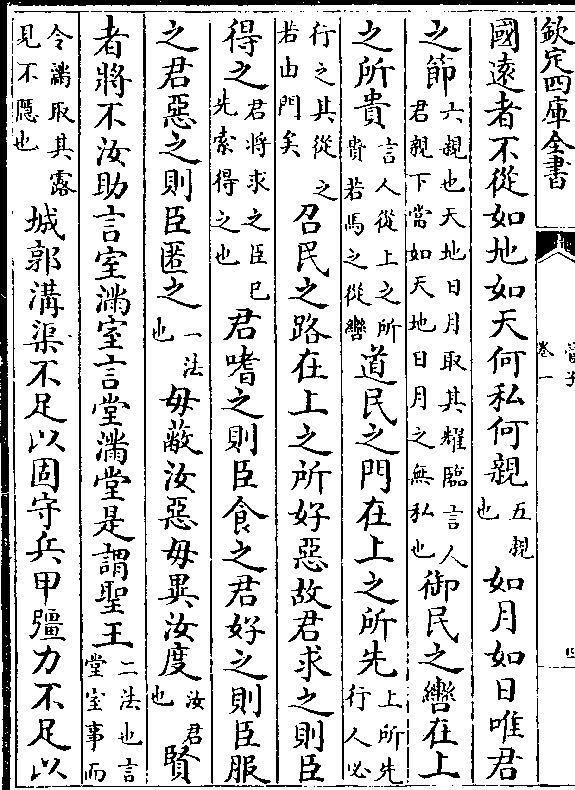 欽定四庫全書
管子
卷一
四
國遠者不從如地如天何私何親五親也如月如日唯君
之節六親也天地日月取其耀臨言人君親下當如天地日月之無私也御民之轡在上
之所貴言人從上之所貴若馬之從轡道民之門在上之所先上所先行人必
行之其從之若由門矣召民之路在上之所好惡故君求之則臣
得之君將求之臣已先索得之也君嗜之則臣食之君好之則臣服
之君惡之則臣匿之一法也毋蔽汝惡毋異汝度汝君也賢
者將不汝助言室滿室言堂滿堂是謂聖王二法也言堂室事而
令滿取其露見不隱也城郭溝渠不足以固守兵甲彊力不足以